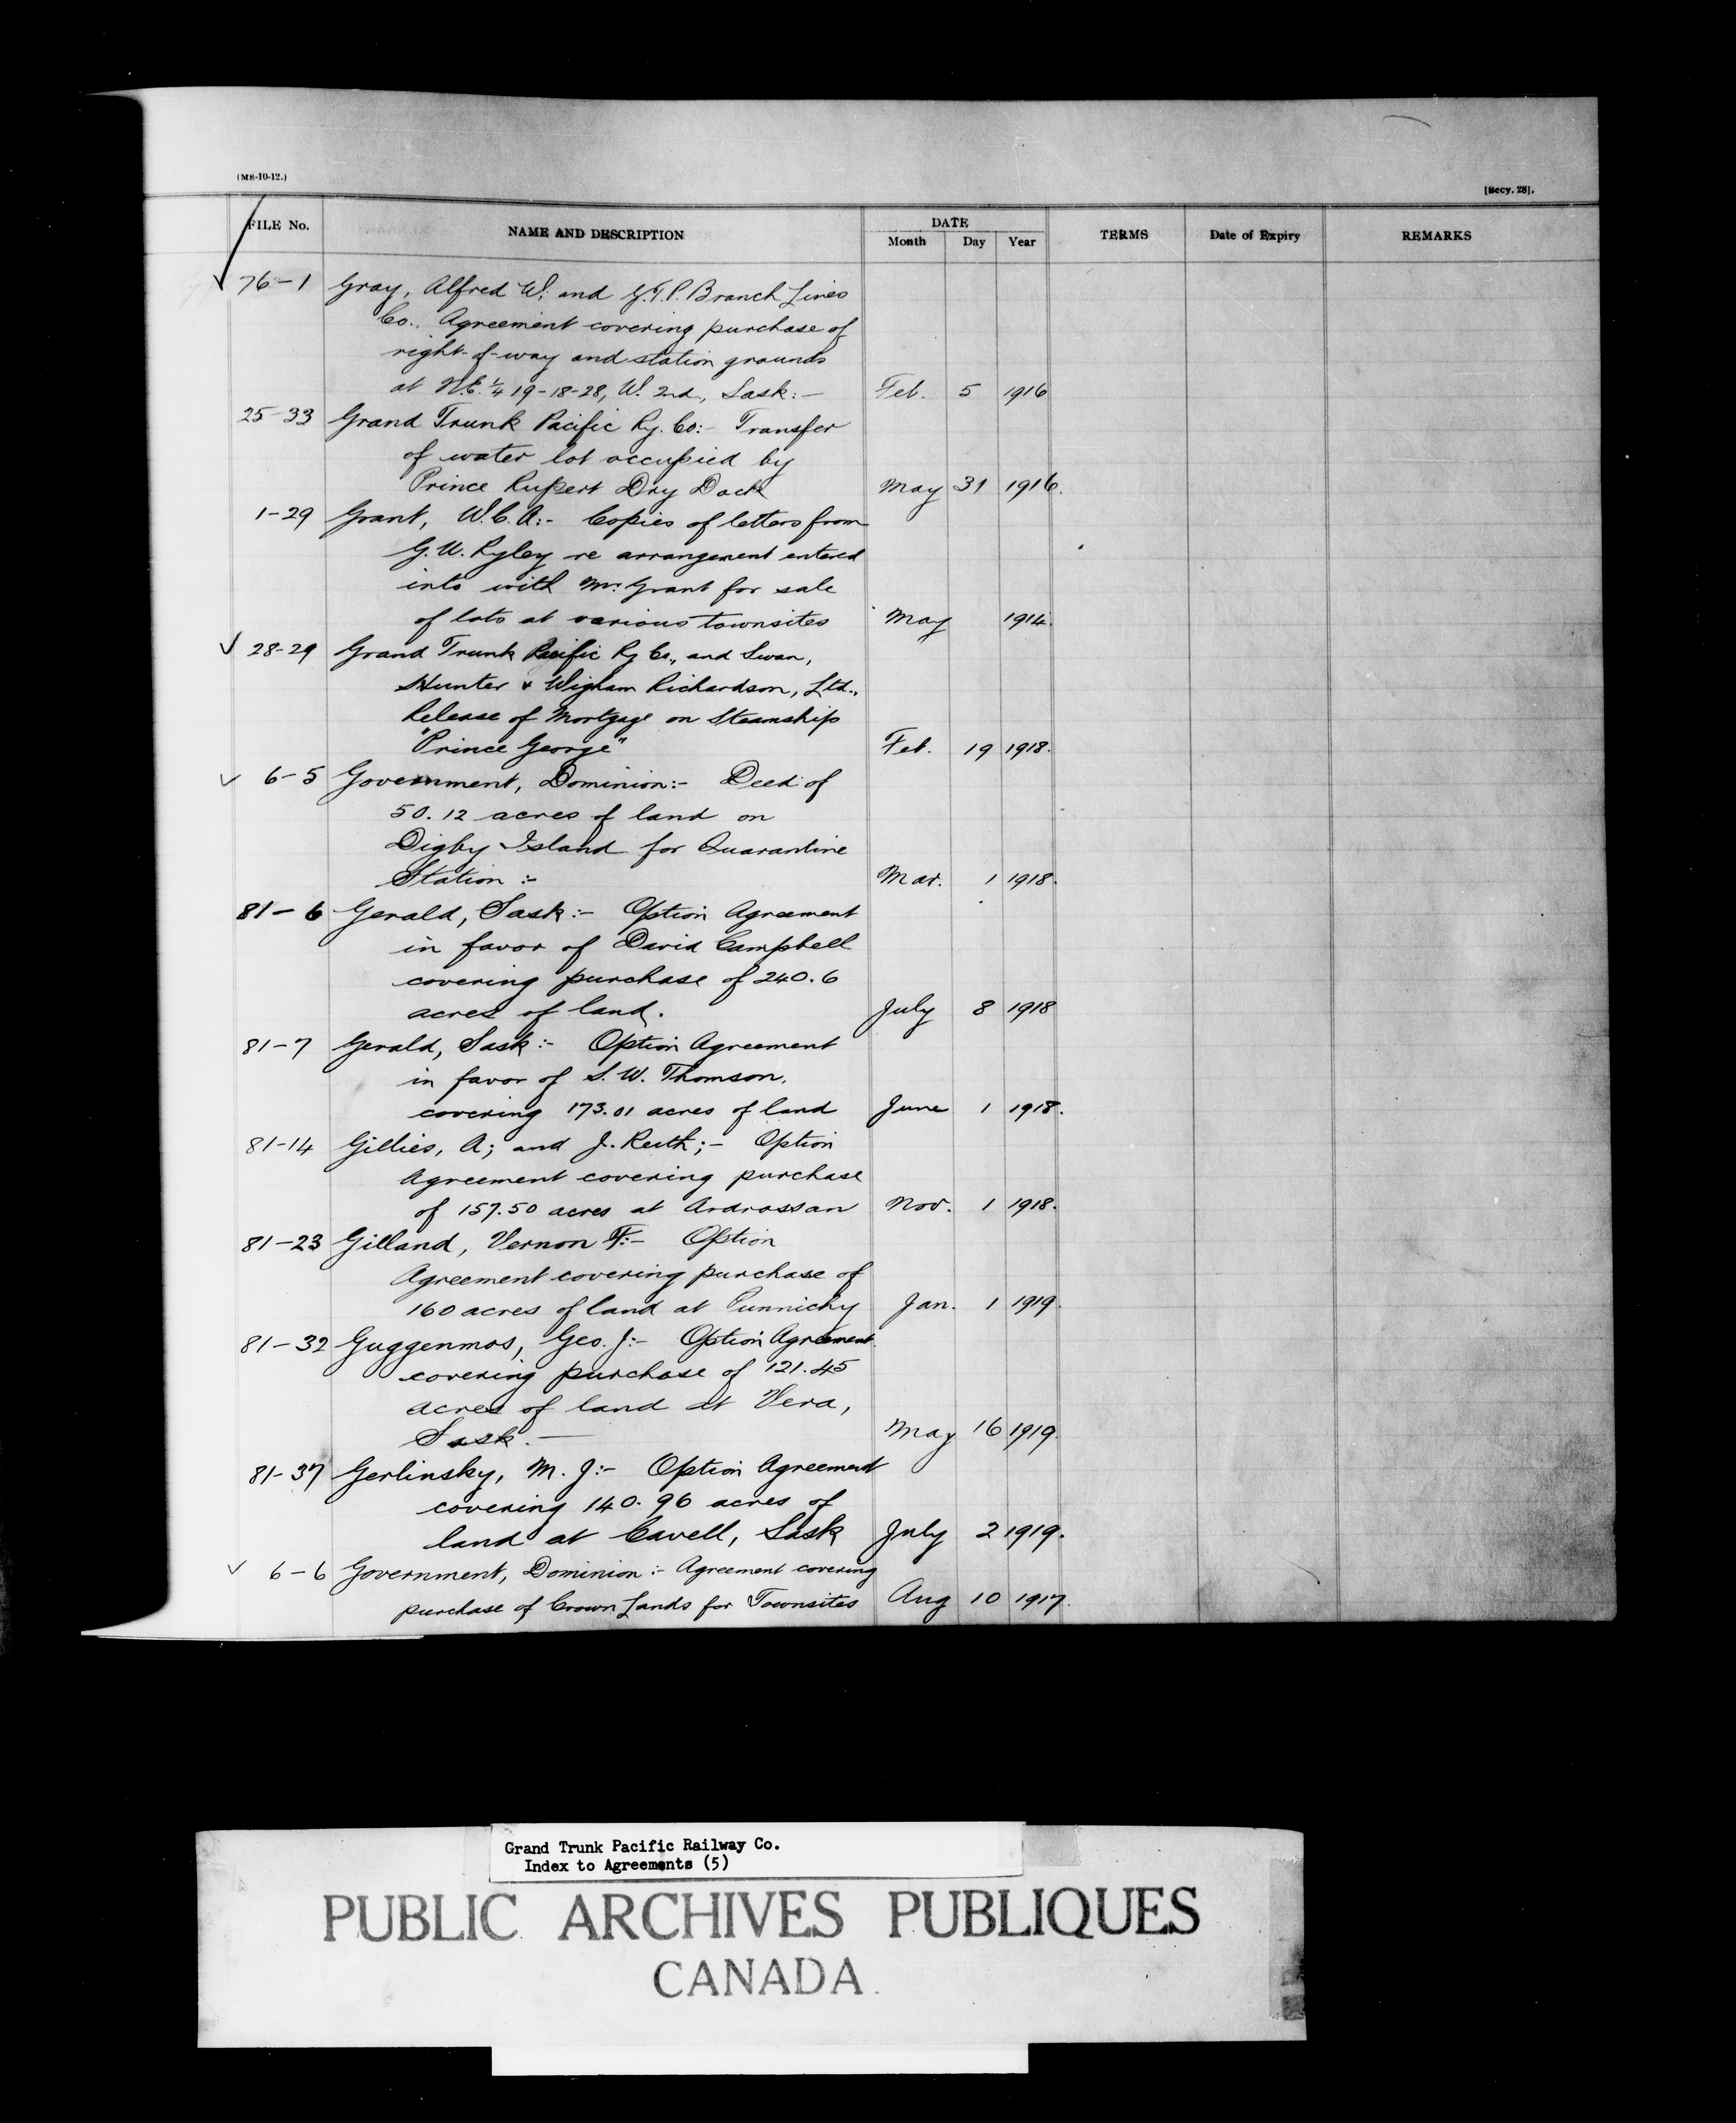 (MS-10-12.)
[Secy. 28].
FILE No.
NAME AND DESCRIPTION
DATE
Month Day Year
TERMS
Date of Expiry
REMARKS
76-1 Gray, Alfred W. and G.T.P. Branch Lines
Co., Agreement covering purchase of
right-of-way and station grounds
at N.E. ¼ 19-18-28, W. 2nd., Sask:- Feb. 5 1916
25-33 Grand Trunk Pacific Ry. Co:- Transfer
of water lot occupied by
Prince Rupert Dry Dock May 31 1916.
1-29 Grant, W.C.A:- Copies of letters from
G.U. Ryley re arrangement entered
into with Mr. Grant for sale
of lots at various townsites May 1914.
✓ 28-29 Grand Trunk Pacific Ry Co., and Swan,
Hunter & Wigham Richardson, Ltd.,
Release of Mortgage on Steamship
"Prince George" Feb. 19 1918.
✓ 6-5 Government, Dominion:- Deed of
50.12 acres of land on
Digby Island for Quarantine
Station :- Mar. 1 1918.
81-6 Gerald, Sask:- Option Agreement
in favor of David Campbell
covering purchase of 240.6
acres of land. July 8 1918
81-7 Gerald, Sask:- Option Agreement
in favor of S. W. Thomson,
covering 173.01 acres of land June 1 1918.
81-14 Gillies, A; and J. Reith;- Option
Agreement covering purchase
of 157.50 acres at Ardrossan Nov. 1 1918.
81-23 Gilland, Vernon F:- Option
Agreement covering purchase of
160 acres of land at Punnichy Jan. 1 1919.
81-32 Guggenmos, Geo. J:- Option Agreement
covering purchase of 121.45
acres of land at Vera,
Sask.- May 16 1919.
81-37 Gerlinsky, M. J:- Option Agreement
covering 140.96 acres of
land at Cavell, Sask July 2 1919.
✓ 6-6 Government, Dominion :- Agreement covering
purchase of Crown Lands for Townsites Aug 10 1917.
Grand Trunk Pacific Railway Co.
Index to Agreements (5)
PUBLIC ARCHIVES PUBLIQUES
CANADA